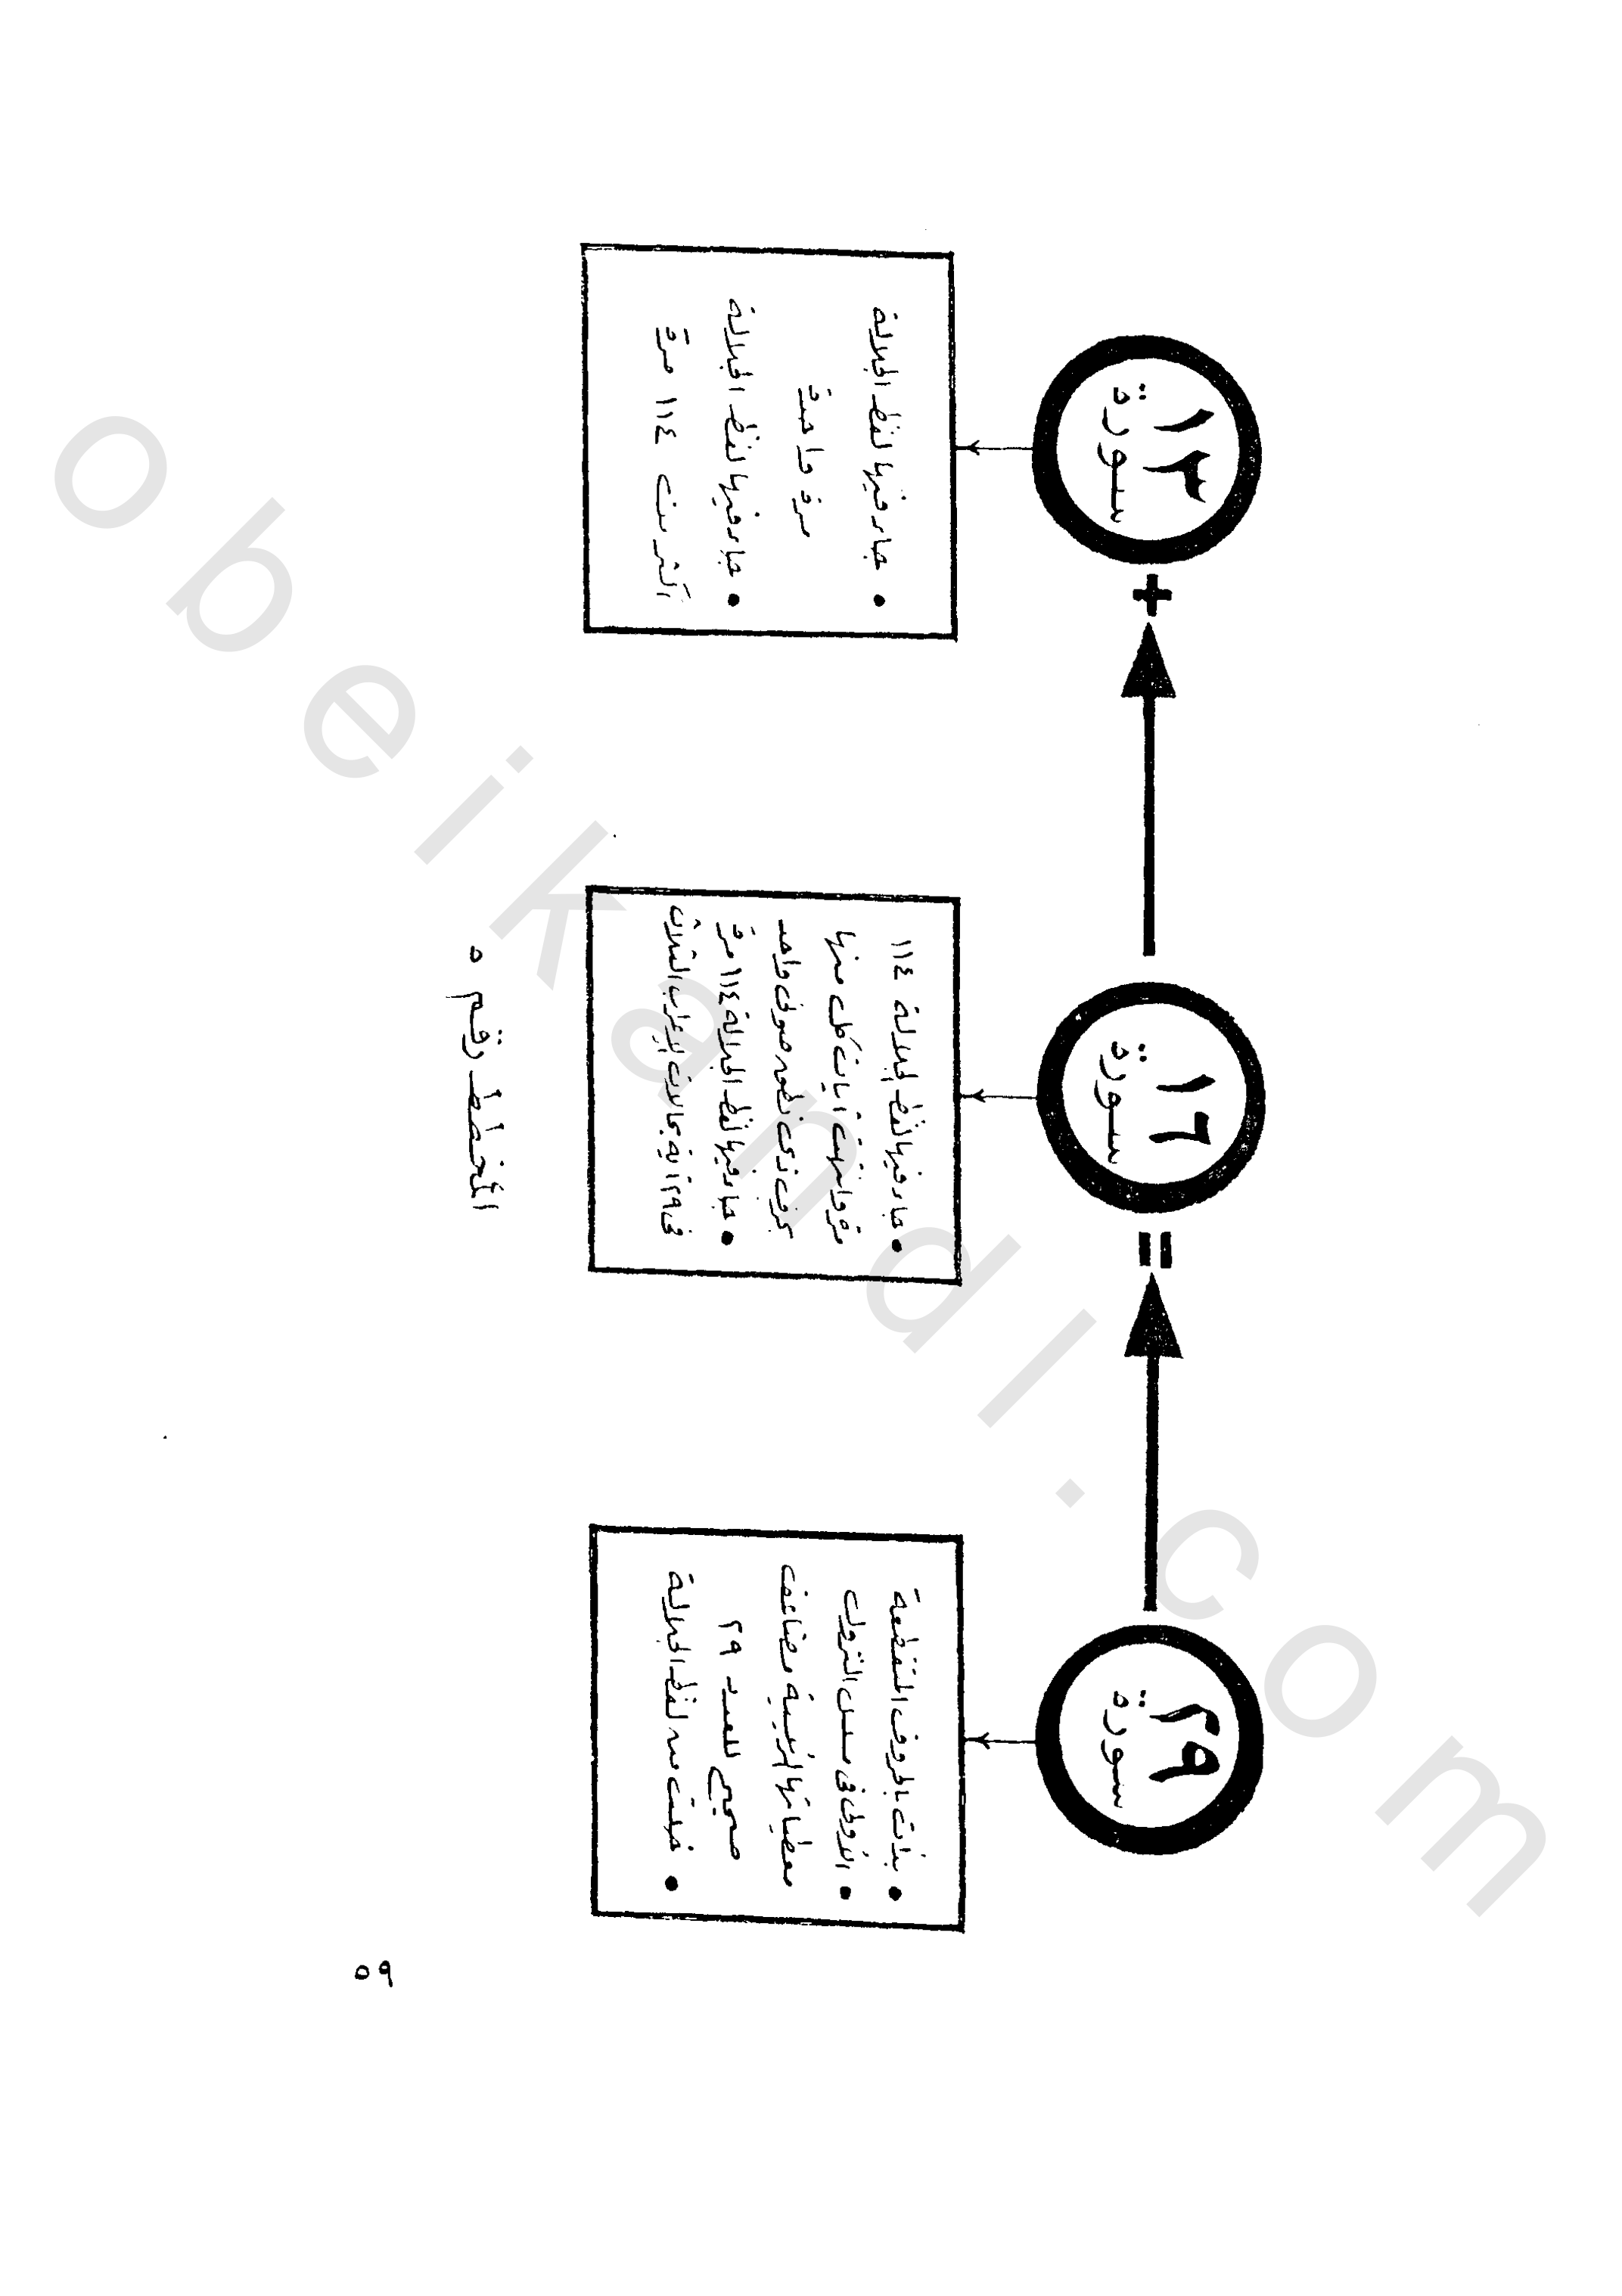 ٢٩
سورة
=
١٦
سورة
+
١٣
سورة
• بدأت بالحروف المتقطعة
• الأولى فى النزول
معطياتها الرقمية مضاعف
صحيح للعدد ٢٩
• خلت من لفظ الجلالة
• جاء فيها لفظ الجلالة ١١٤
مرة وانتهت آيات كل منها
بحرف ذى نطق صوتى واحد
• جاء فيها لفظ الجلالة ١١٤ مرة
فى ٢٩ آية بحالات الإعراب الثلاث
• جاء فيها لفظ الجلالة
مرة واحدة
• جاء فيها لفظ الجلالة
أكثر من ١١٤ مرة
المخطط رقم ٥
٥٩
obeikandl.com